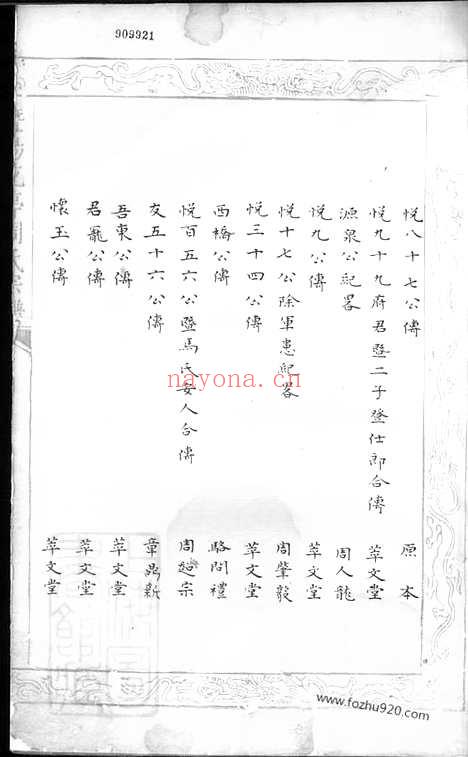 909921
悅八十七公傳 原本
悅九十九府君暨二子登仕郎合傳 萃文堂
源泉公紀畧 周人龍
悅九公傳 萃文堂
悅十七公除軍患紀畧 周肇
悅三十四公傳 萃文堂
西橋公傳 駱問禮
悅百五六公暨馬氏安人合傳 周延宗
友五十六公傳 章品新
吾東公傳 萃文堂
君寵公傳 萃文堂
懷玉公傳 萃文堂
nayona.cn
www.fozhu920.com